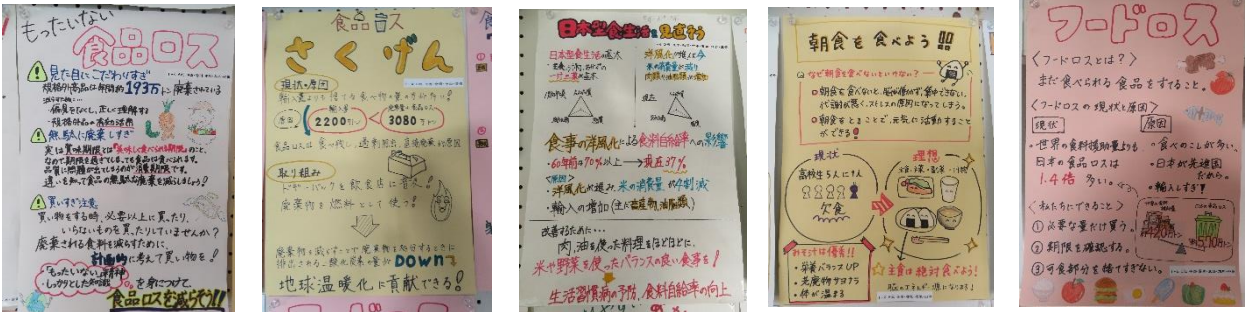 もったいない
食品ロス
見た目にこだわりすぎ
規格外商品は年間約193万トン廃棄されている
・偏見をなくし、正しく理解する
・規格外品の活用
無駄に廃棄しすぎ
実は賞味期限とは"美味しく食べられる期限"のこと。
なので期限を過ぎていても食品は食べられます。
品質に問題が出てくるのが消費期限です。
違いを知って食品の無駄な廃棄を減らしましょう！
買いすぎ注意
買い物をする時、必要以上に買ったり、
いらないものを買ったりしていませんか？
廃棄される食料を減らすために、
計画的に考えて買い物を！
「もったいない」精神
しっかりとした知識
を身につけて、
食品ロスを減らそう!!
食品ロス
さくげん
現状・原因
輸入量よりも捨てる食べ物の量の方が多い！
2200万トン < 3080万トン
食品ロスは食べ残し、過剰除去、直接廃棄が原因
取り組み
ドギーバックを飲食店に導入！
廃棄物を燃料として使う！
廃棄物を減らすことで廃棄物を処分するときに
排出される二酸化炭素の量が DOWN
地球温暖化に貢献できる！
日本型食生活を見直そう
日本型食生活の基本
洋風化が進んだ今
米の消費量が減り
理想
現在
食事の洋風化による食料自給率への影響
・60年前は70%以上→現在37%
<原因>
・洋風化が進み、米の消費量が4割減
・輸入の増加(主に畜産物、油脂類)
改善するために…
肉、油を使った料理をほどほどに、
米や野菜を使ったバランスの良い食事を！
生活習慣病の予防、食料自給率の向上
朝食を食べよう!!
なぜ朝食を食べないといけないの？
朝食を食べないと、脳が働かず、集中できない。
代謝が悪く、ストレスの原因になってしまう。
朝食をとることで、元気に活動すること
ができる！
現状
高校生5人に1人
欠食
理想
主食・主菜・副菜・汁物
おみそ汁は優秀!!
・栄養バランスUP
・老廃物サヨナラ
・体が温まる
主食は絶対食べよう！
脳のエネルギー源になります！
フードロス
〈フードロスとは？〉
まだ食べられる食品をすてること。
〈フードロスの現状と原因〉
現状
・世界の食料援助量よりも
日本の食品ロスは
1.4倍多い。
原因
・食べのこしが多い。
・日本が先進国
だから。
・輸入しすぎ！
〈私たちにできること〉
① 必要な量だけ買う。
② 期限を確認する。
③ 可食部分を捨てすぎない。